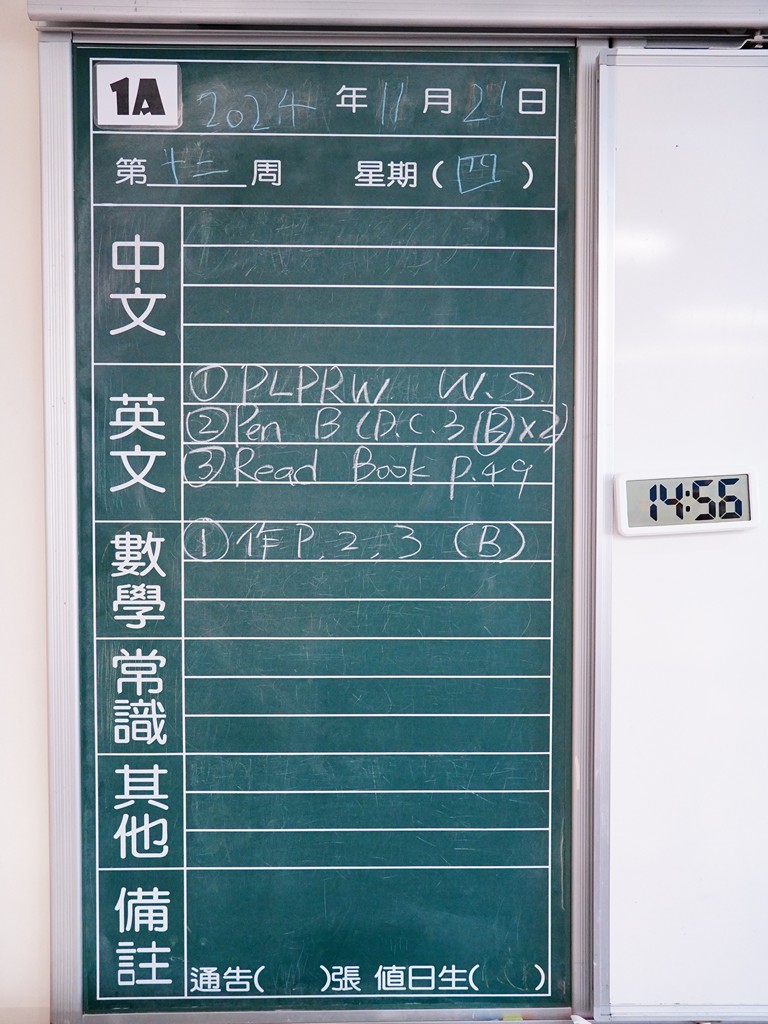 1A 2024 年 11 月 21 日
第十三周 星期(四)
中文
英文
① PLPRW W.S.
② Pen B (D.C.3 (B)×2)
③ Read Book P.49
數學
① 作 P.2,3 (B)
常識
其他
備註
通告( )張 值日生( )
14:56